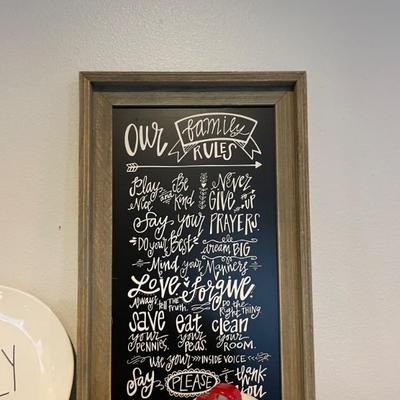 Our family RULES
Play Nice and Be Kind
Never GIVE UP
Say your PRAYERS
DO your Best
dream BIG
Mind your Manners
Love. Forgive.
Always tell the truth.
DO the Right THING.
save your PENNIES.
eat your PEAS.
clean your ROOM.
use your INSIDE VOICE
Say PLEASE & thank you
LY